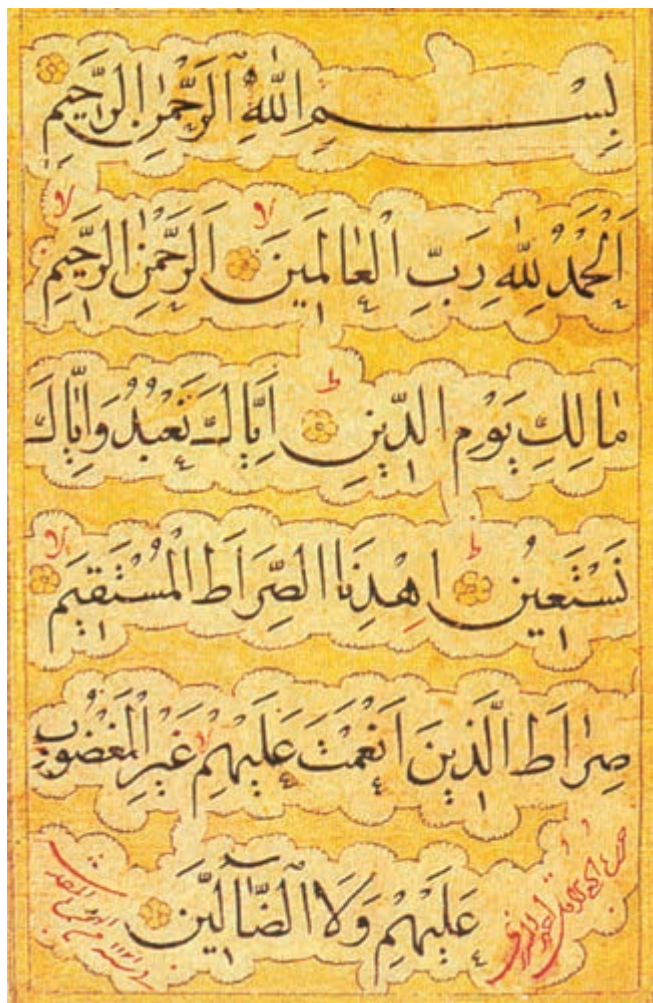 بِسْمِ اللّٰهِ الرَّحْمٰنِ الرَّحِيمِ
اَلْحَمْدُ لِلّٰهِ رَبِّ الْعٰالَمِينَ اَلرَّحْمٰنِ الرَّحِيمِ
مٰالِكِ يَوْمِ الدِّينِ اِيّٰاكَ نَعْبُدُ وَاِيّٰاكَ
نَسْتَعِينُ اِهْدِنَا الصِّرَاطَ الْمُسْتَقِيمَ
صِرٰاطَ الَّذِينَ اَنْعَمْتَ عَلَيْهِمْ غَيْرِ الْمَغْضُوبِ
عَلَيْهِمْ وَلَا الضَّٓالِّينَ